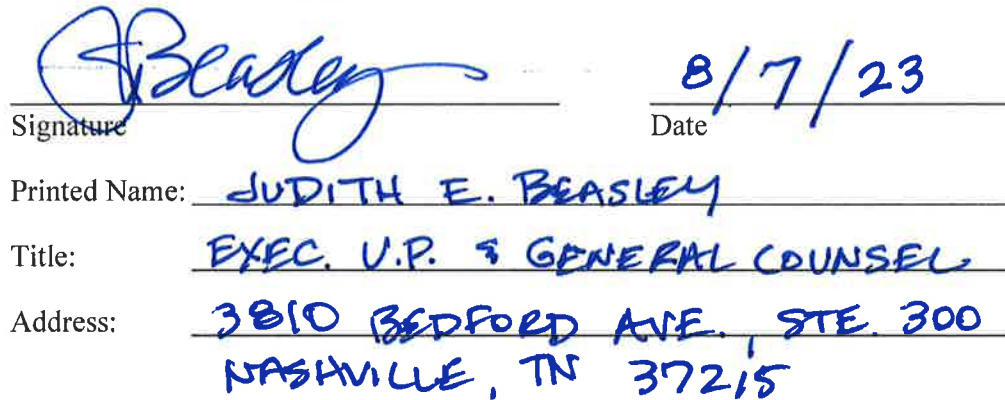 JBeasley 8/7/23
Signature Date
Printed Name: JUDITH E. BEASLEY
Title: EXEC. V.P. & GENERAL COUNSEL
Address: 3810 BEDFORD AVE., STE. 300
NASHVILLE, TN 37215